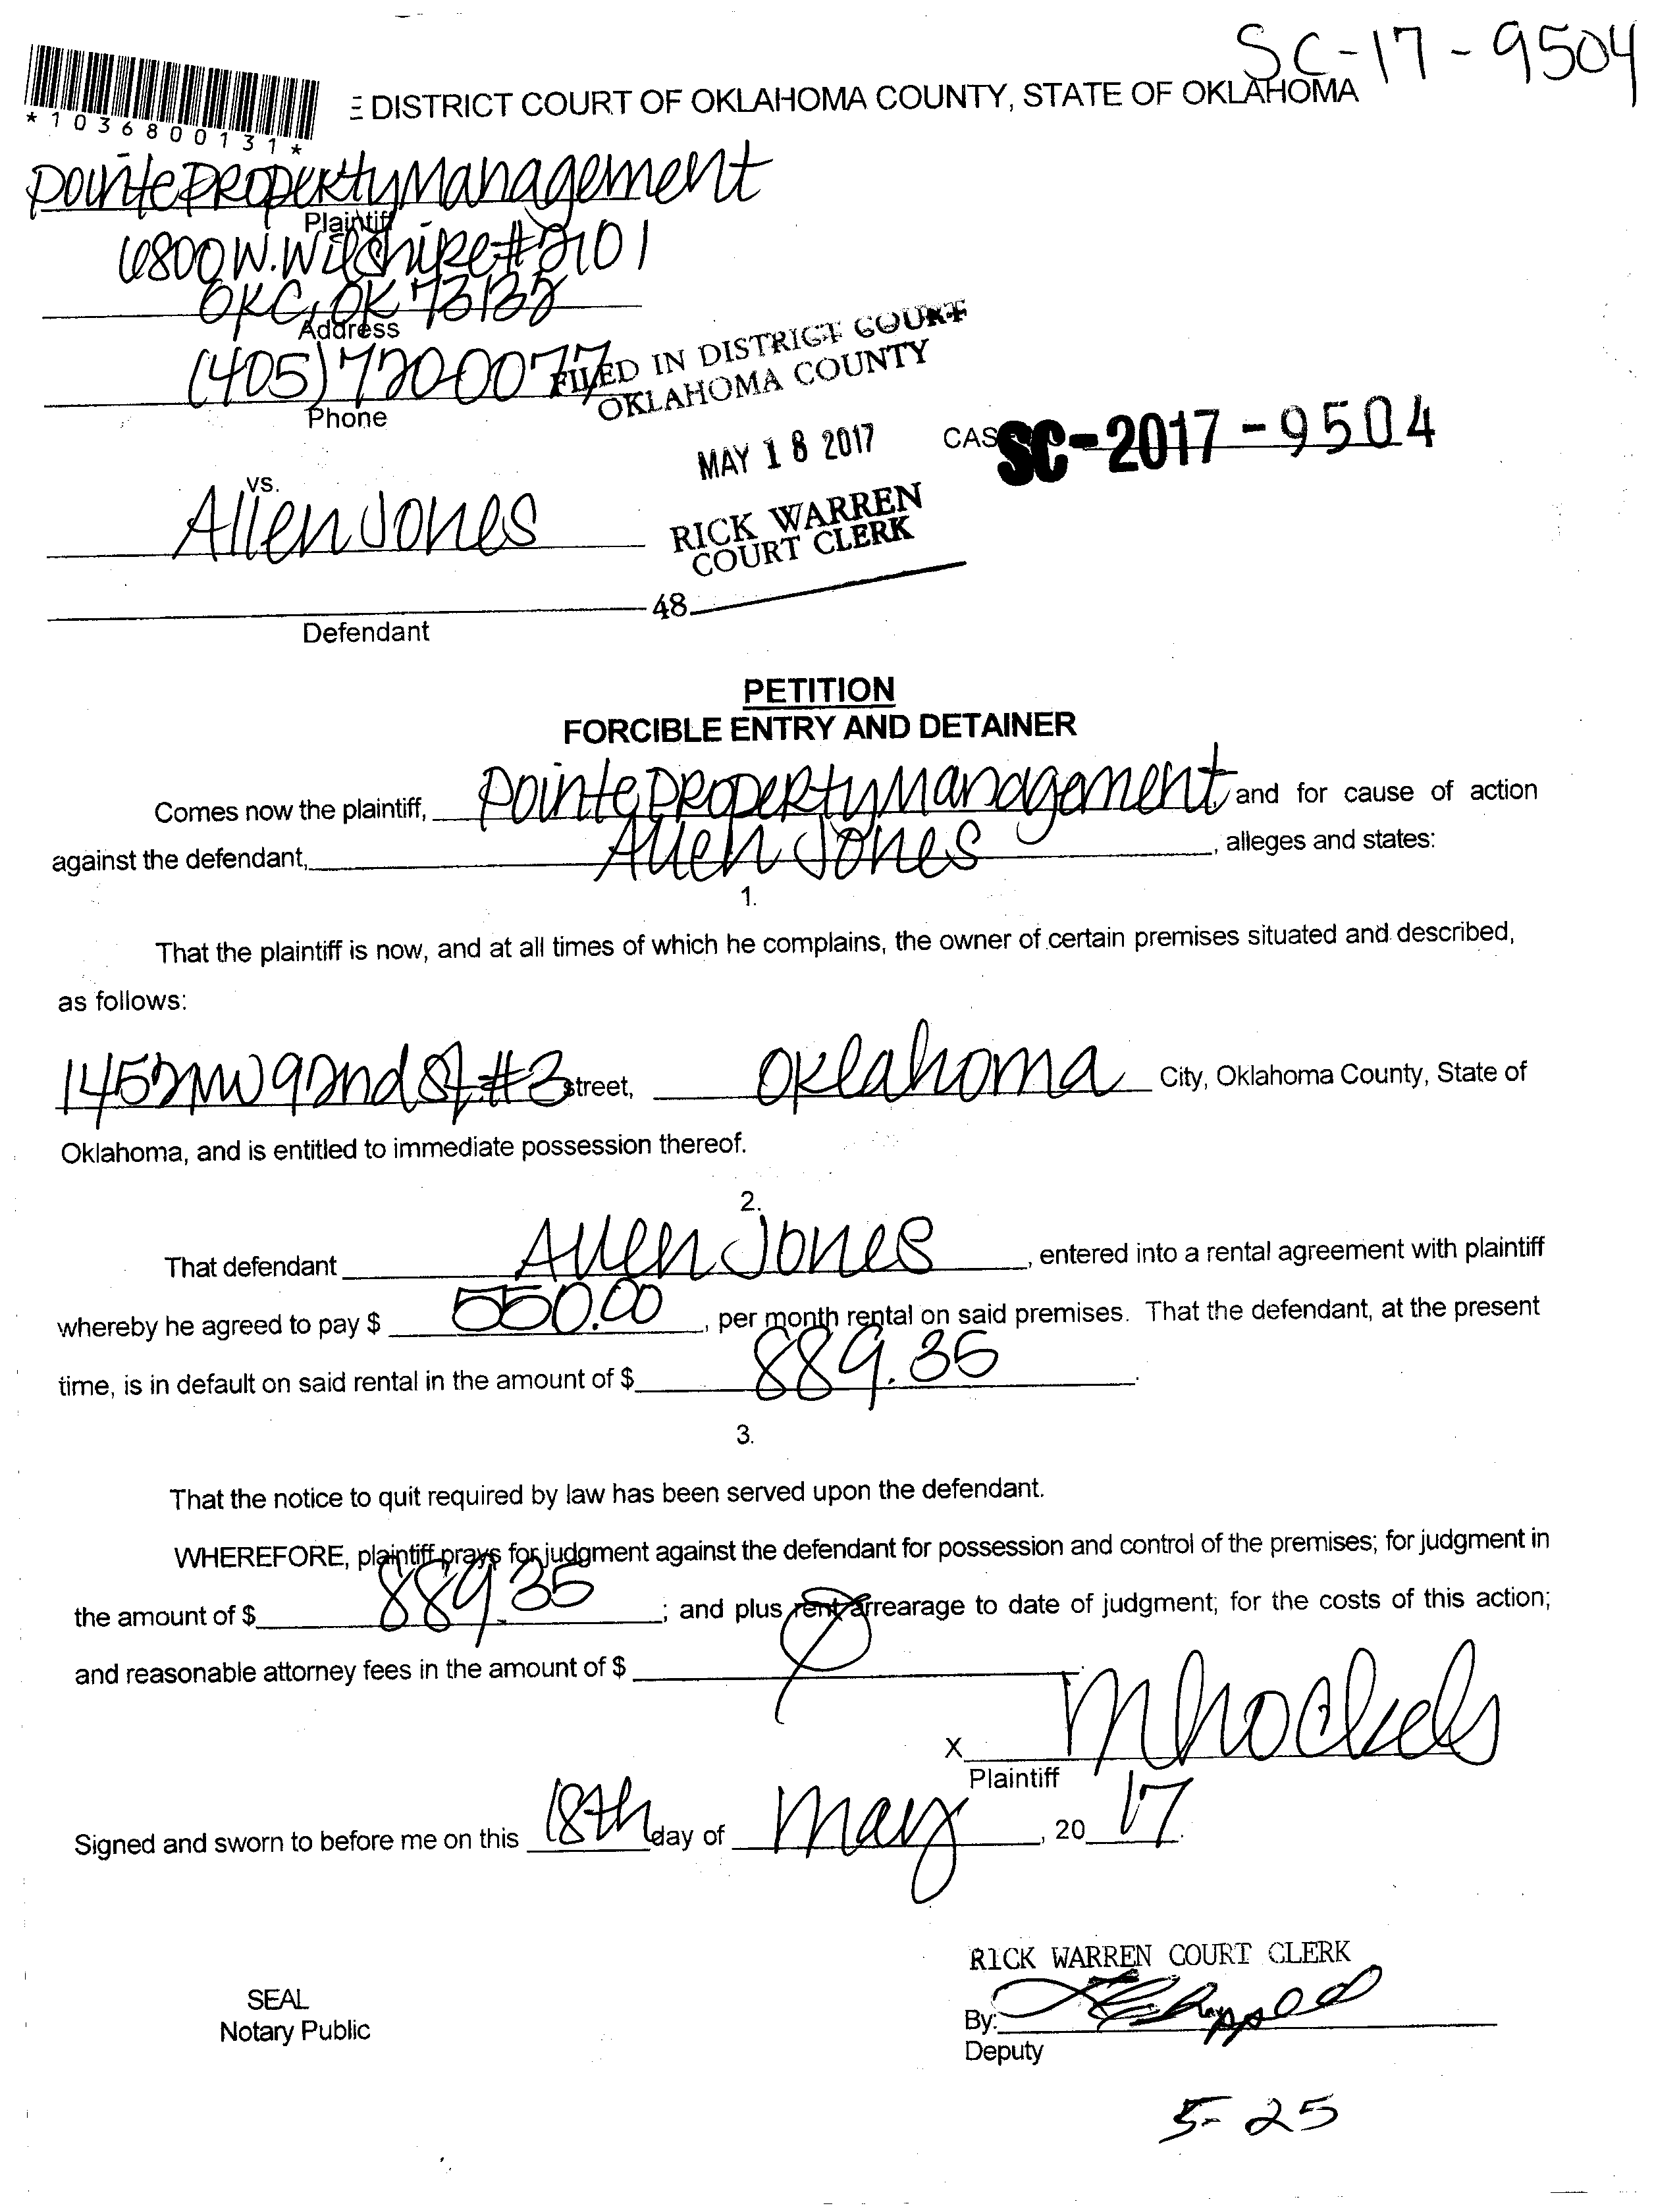 SC-17-9504
E DISTRICT COURT OF OKLAHOMA COUNTY, STATE OF OKLAHOMA
*1036800131*
Pointe Property Management
Plaintiff
6800 W. Wilshire #2101
OKC, OK 73132
Address
(405) 720-0077
Phone
FILED IN DISTRICT COURT
OKLAHOMA COUNTY
MAY 18 2017
RICK WARREN
COURT CLERK
48
CAS SC-2017-9504
vs.
Allen Jones
Defendant
PETITION
FORCIBLE ENTRY AND DETAINER
Comes now the plaintiff, Pointe Property Management, and for cause of action
against the defendant, Allen Jones, alleges and states:
1.
That the plaintiff is now, and at all times of which he complains, the owner of certain premises situated and described,
as follows:
1452 NW 92nd St #3 street, Oklahoma City, Oklahoma County, State of
Oklahoma, and is entitled to immediate possession thereof.
2.
That defendant Allen Jones, entered into a rental agreement with plaintiff
whereby he agreed to pay $ 550.00, per month rental on said premises. That the defendant, at the present
time, is in default on said rental in the amount of $ 889.35.
3.
That the notice to quit required by law has been served upon the defendant.
WHEREFORE, plaintiff prays for judgment against the defendant for possession and control of the premises; for judgment in
the amount of $ 889.35; and plus rent arrearage to date of judgment; for the costs of this action;
and reasonable attorney fees in the amount of $
X
Plaintiff
Signed and sworn to before me on this 18th day of May, 2017.
SEAL
Notary Public
RICK WARREN COURT CLERK
By:
Deputy
5-25